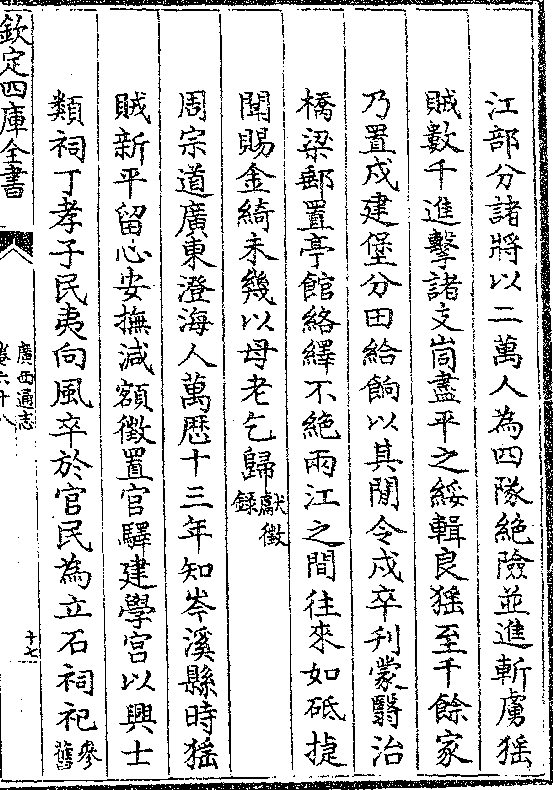 江部分諸將以二萬人為四隊絶險並進斬虜猺
賊數千進擊諸支峝盡平之綏輯良猺至千餘家
乃置戍建堡分田給餉以其閒令戍卒刋蒙翳治
橋梁郵置亭館絡繹不絶兩江之間往來如砥捷
聞賜金綺未幾以母老乞歸獻徵錄
周宗道廣東澄海人萬歴十三年知岑溪縣時猺
賊新平留心安撫減額徵置官驛建學宫以興士
類祠丁孝子民夷向風卒於官民為立石祠祀參舊
欽定四庫全書
廣西通志
卷六十八
十七